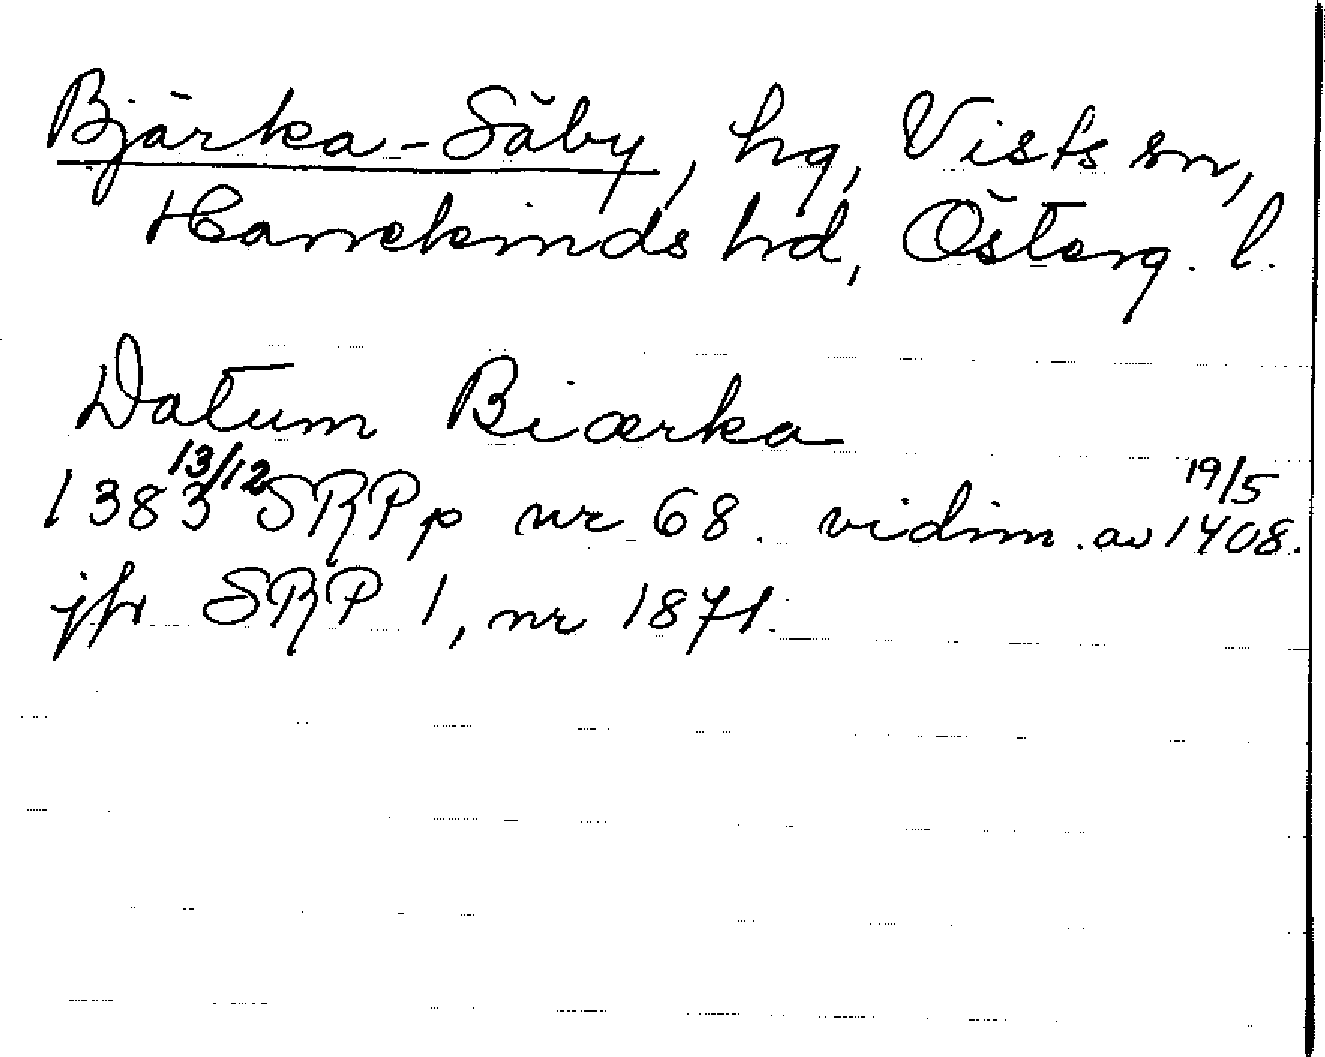 Bjärka-Säby, hg, Vists sn,
Hanekinds hd, Österg. l.
Datum Biærka
1383 13/12 SRPp nr 68. vidim. av 19/5 1408.
jfr SRP 1, nr 1871.